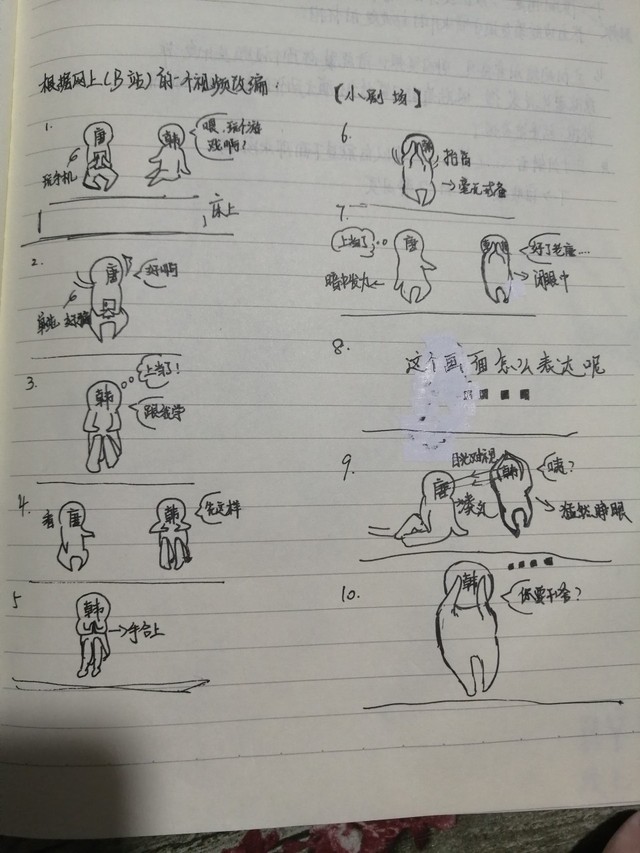 根据网上(B站)的一个视频改编:
【小剧场】
1.
唐
韩
喂,玩个游
戏啊?
玩手机
床上
2.
唐
好啊
单纯,好骗
3.
韩
上当了!
跟我学
4.
看
唐
韩
先这样
5
韩
手合上
6.
抬首
毫无戒备
7.
上当了
唐
好了老唐....
暗中发力
闭眼中
8.
这个画面怎么表达呢
9.
唐
目光对视
韩
咦?
猛然睁眼
10.
韩
你要干啥?